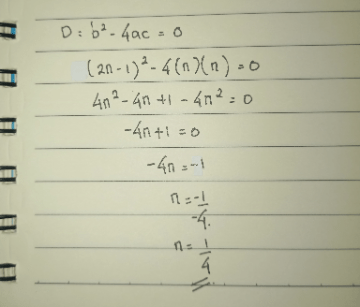 D : b² - 4ac = 0
(2n-1)² - 4(n)(n) = 0
4n² - 4n + 1 - 4n² = 0
-4n + 1 = 0
-4n = -1
n = -1/-4.
n = 1/4